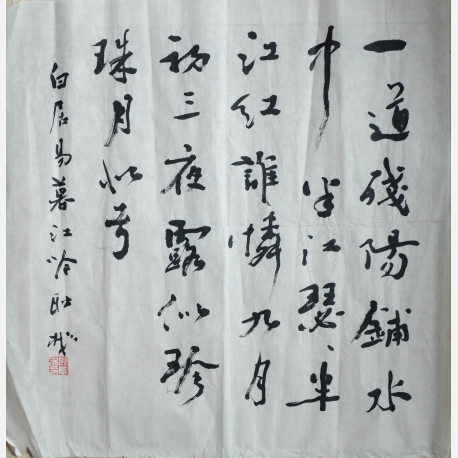 一道殘陽鋪水
中半江瑟、半
江紅誰憐九月
初三夜露似珍
珠月似弓
白居易暮江吟